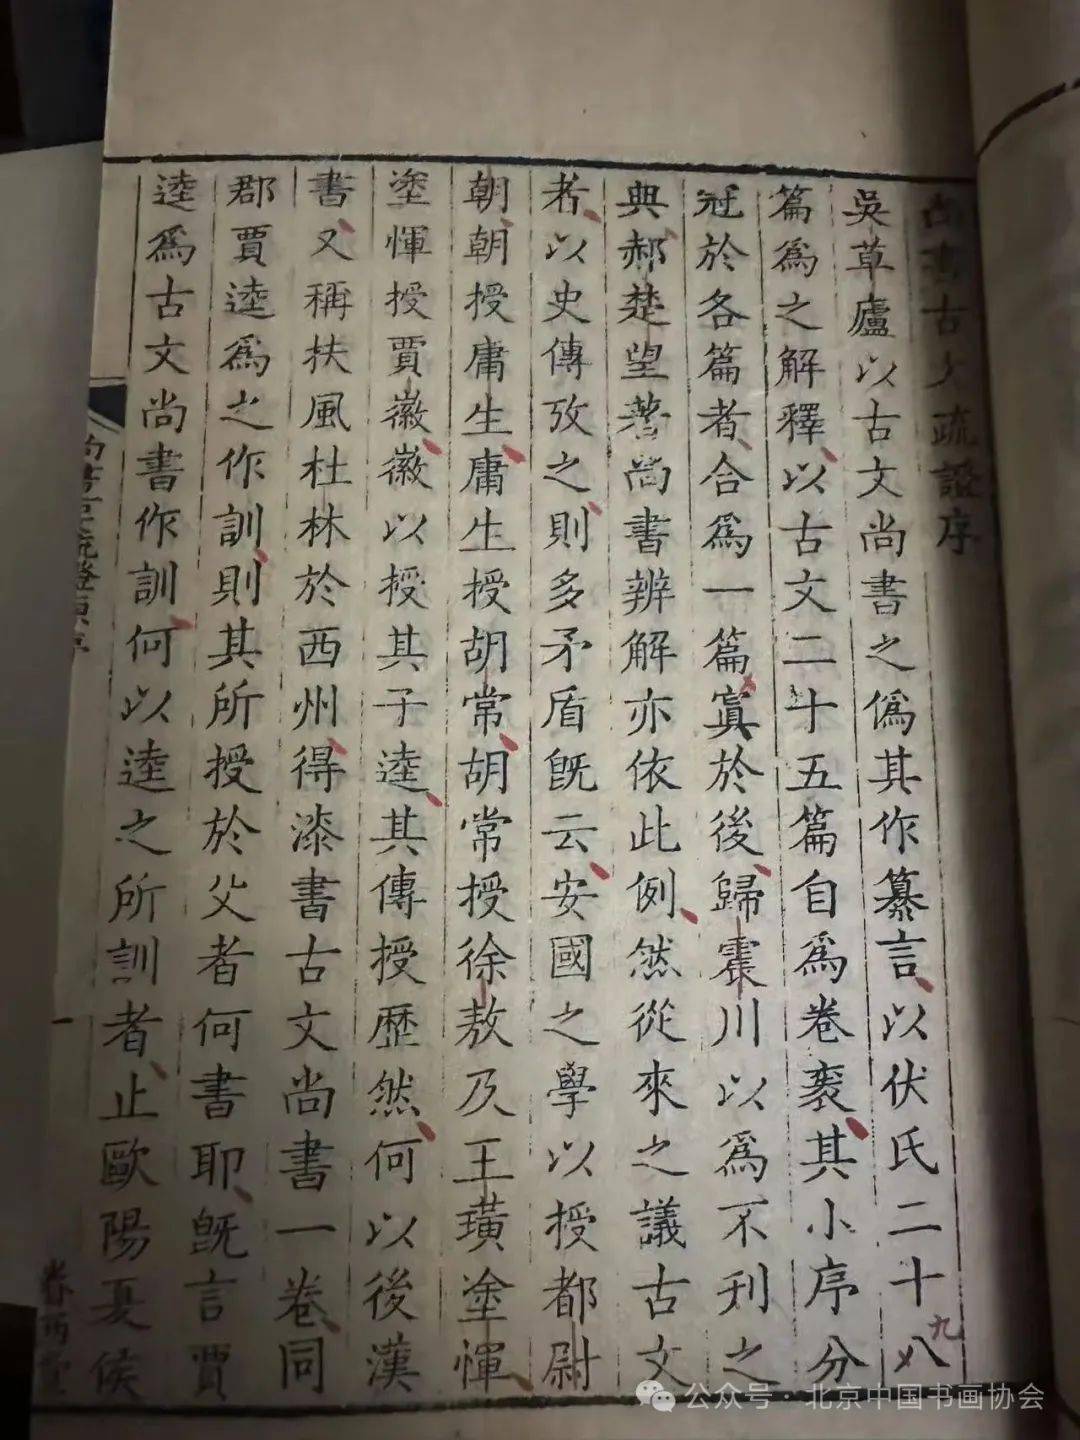 尚書古文疏證序
吳草廬以古文尚書之僞其作纂言以伏氏二十八
九
篇爲之解釋以古文二十五篇自爲卷袠其小序分
冠於各篇者合爲一篇寘於後歸震川以爲不刋之
典郝楚望著尚書辨解亦依此例然從來之議古文
者以史傳攷之則多矛盾旣云安國之學以授都尉
朝朝授庸生庸生授胡常胡常授徐敖及王璜塗惲
塗惲授賈徽徽以授其子逵其傳授歷然何以後漢
書又稱扶風杜林於西州得漆書古文尚書一卷同
郡賈逵爲之作訓則其所授於父者何書耶旣言賈
逵爲古文尚書作訓何以逵之所訓者止歐陽夏侯
一
公众号·北京中国书画协会